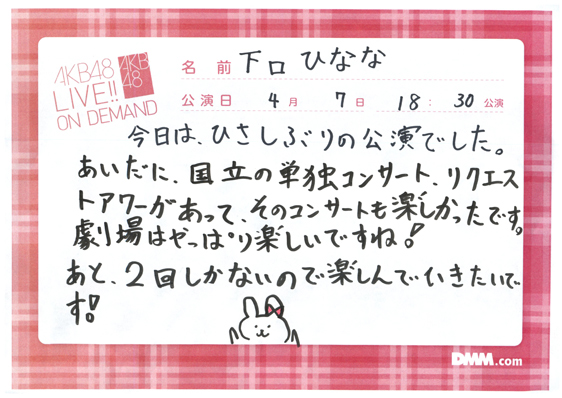 AKB48
LIVE!!
ON DEMAND
AKB
48
名前 下口ひなな
公演日 4月 7日 18:30公演
今日は、ひさしぶりの公演でした。
あいだに、国立の単独コンサート、リクエス
トアワーがあって、そのコンサートも楽しかったです。
劇場はやっぱり楽しいですね!
あと、2回しかないので楽しんでいきたいで
す!
DMM.com